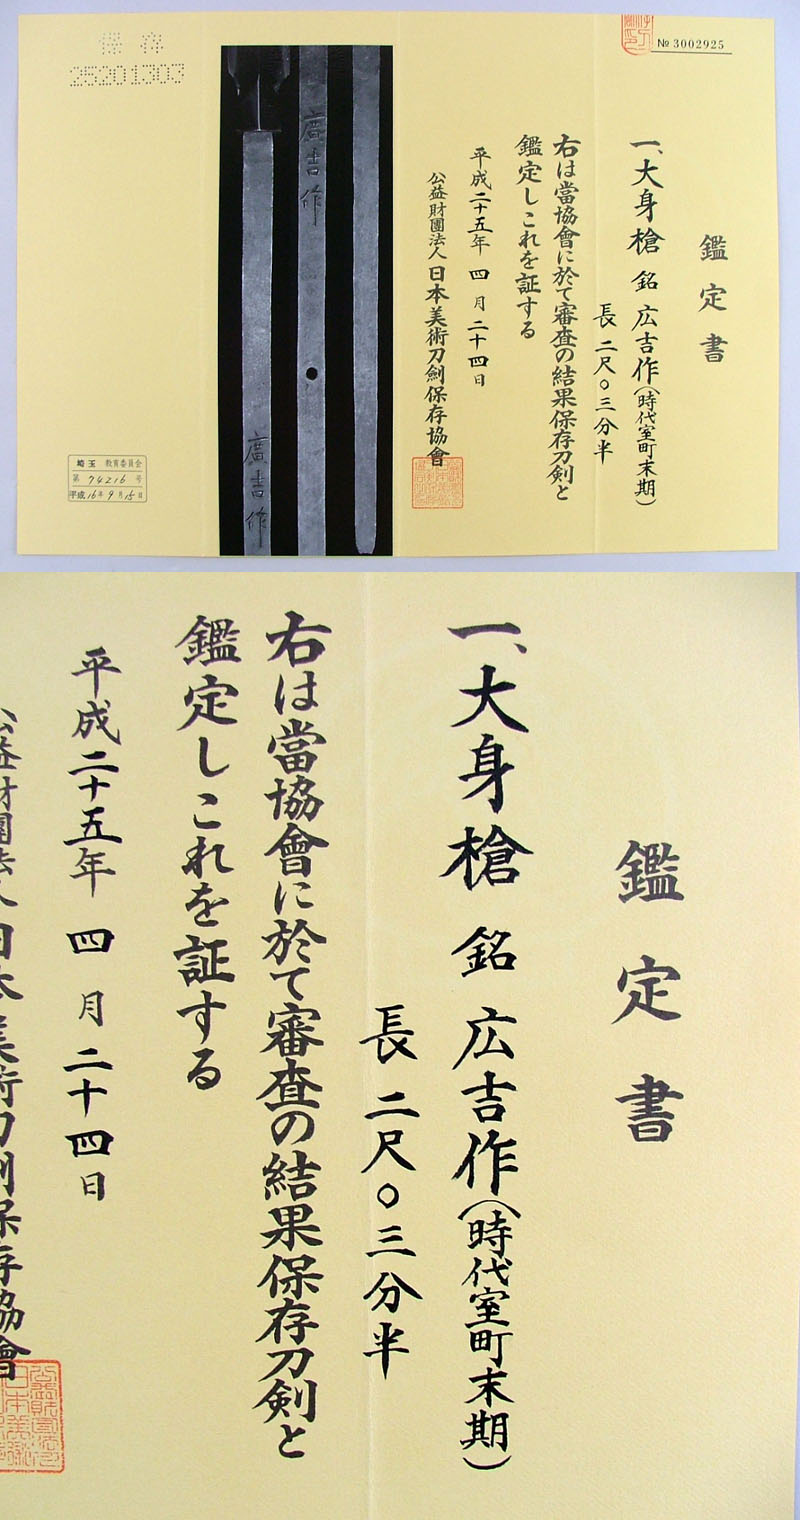 鑑定書
一、大身槍 銘 広吉作(時代室町末期)
長 二尺〇三分半
右は當協會に於て審査の結果保存刀剣と
鑑定しこれを証する
平成二十五年 四月二十四日
公益財團法人 日本美術刀劍保存協會
№ 3002925
廣吉作
廣吉作
保存
25201303
埼玉 教育委員会
第 74216 号
平成16年9月15日
鑑定書
一、大身槍 銘 広吉作(時代室町末期)
長 二尺〇三分半
右は當協會に於て審査の結果保存刀剣と
鑑定しこれを証する
平成二十五年 四月二十四日
公益財團法人 日本美術刀劍保存協會